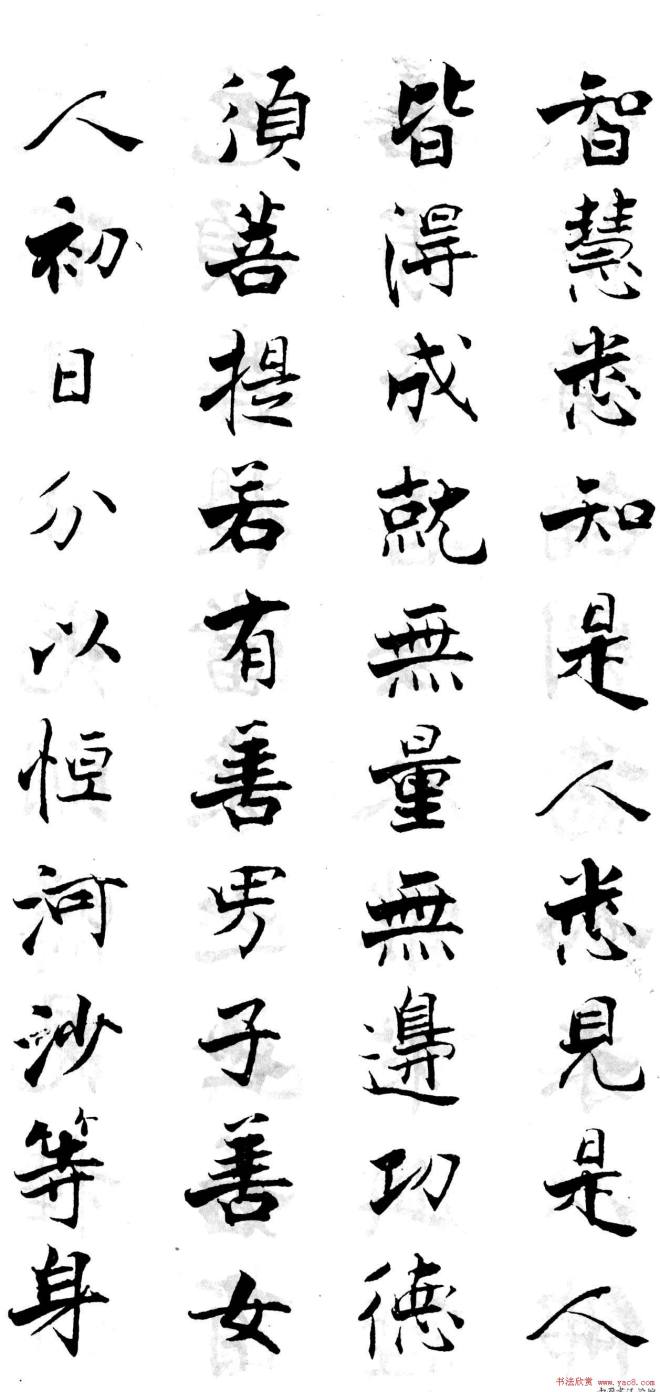 智慧悉知是人悉見是人
皆得成就無量無邊功德
須菩提若有善男子善女
人初日分以恒河沙等身
书法欣赏 www.yac8.com